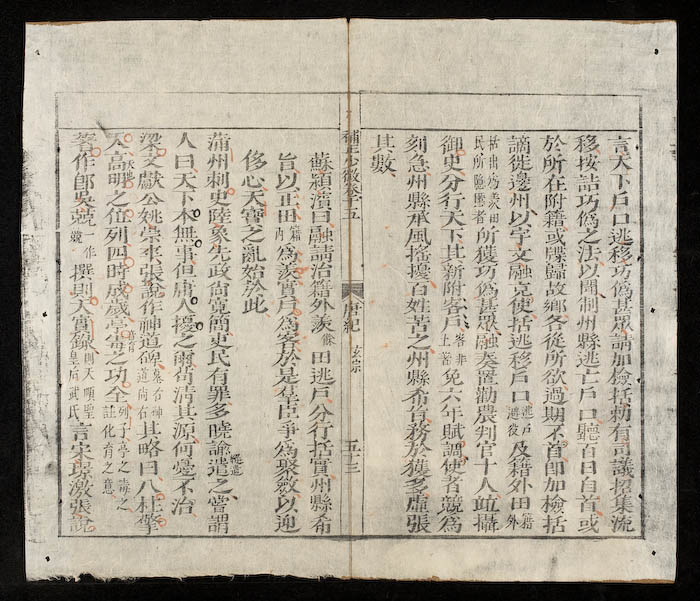 言天下戶口逃移巧偽甚眾請加檢括勅有司議招集流
移按詰巧偽之法以聞制州縣逃亡戶口聽百日自首或
於所在附籍或牒歸故鄉各從所欲過期不首即加檢括
謫徙邊州以宇文融充使括逃移戶口逃戶避役及籍外田籍外
括出爲羨田民所隱匿者所獲巧偽甚眾融奏置勸農判官十人並攝
御史分行天下其新附客戶客非土著免六年賦調使者競爲
刻急州縣承風搖擾百姓苦之州縣希旨務於獲多虛張
其數
補正少微卷十五
唐紀 玄宗 五十三
蘇潁濱曰融請治籍外羨餘田逃戶分行括實州縣希
旨以正田籍內爲羨實戶爲客於是羣臣爭爲聚斂以迎
侈心天寶之亂始於此
蒲州刺史陸象先政尚寬簡吏民有罪多曉諭遣之嘗謂
人曰天下本無事但庸人擾之爾苟清其源何憂不治
梁文獻公姚崇卒張說作神道碑墓右神道尚右其略曰八柱擎
天高明之位列四時成歲亭毒之功全列子亭之毒之註化育之意
著作郎吳兢一作競撰則天實錄則天順聖皇后武氏言宋璟激張說